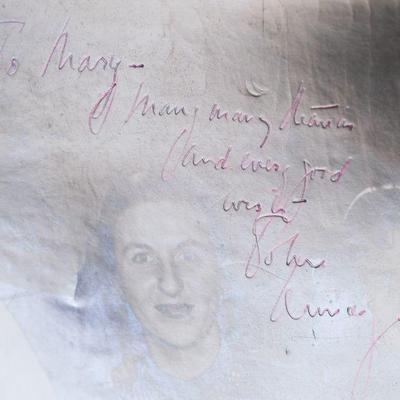 To Mary -
Many many thanks
and every good
wish -
John